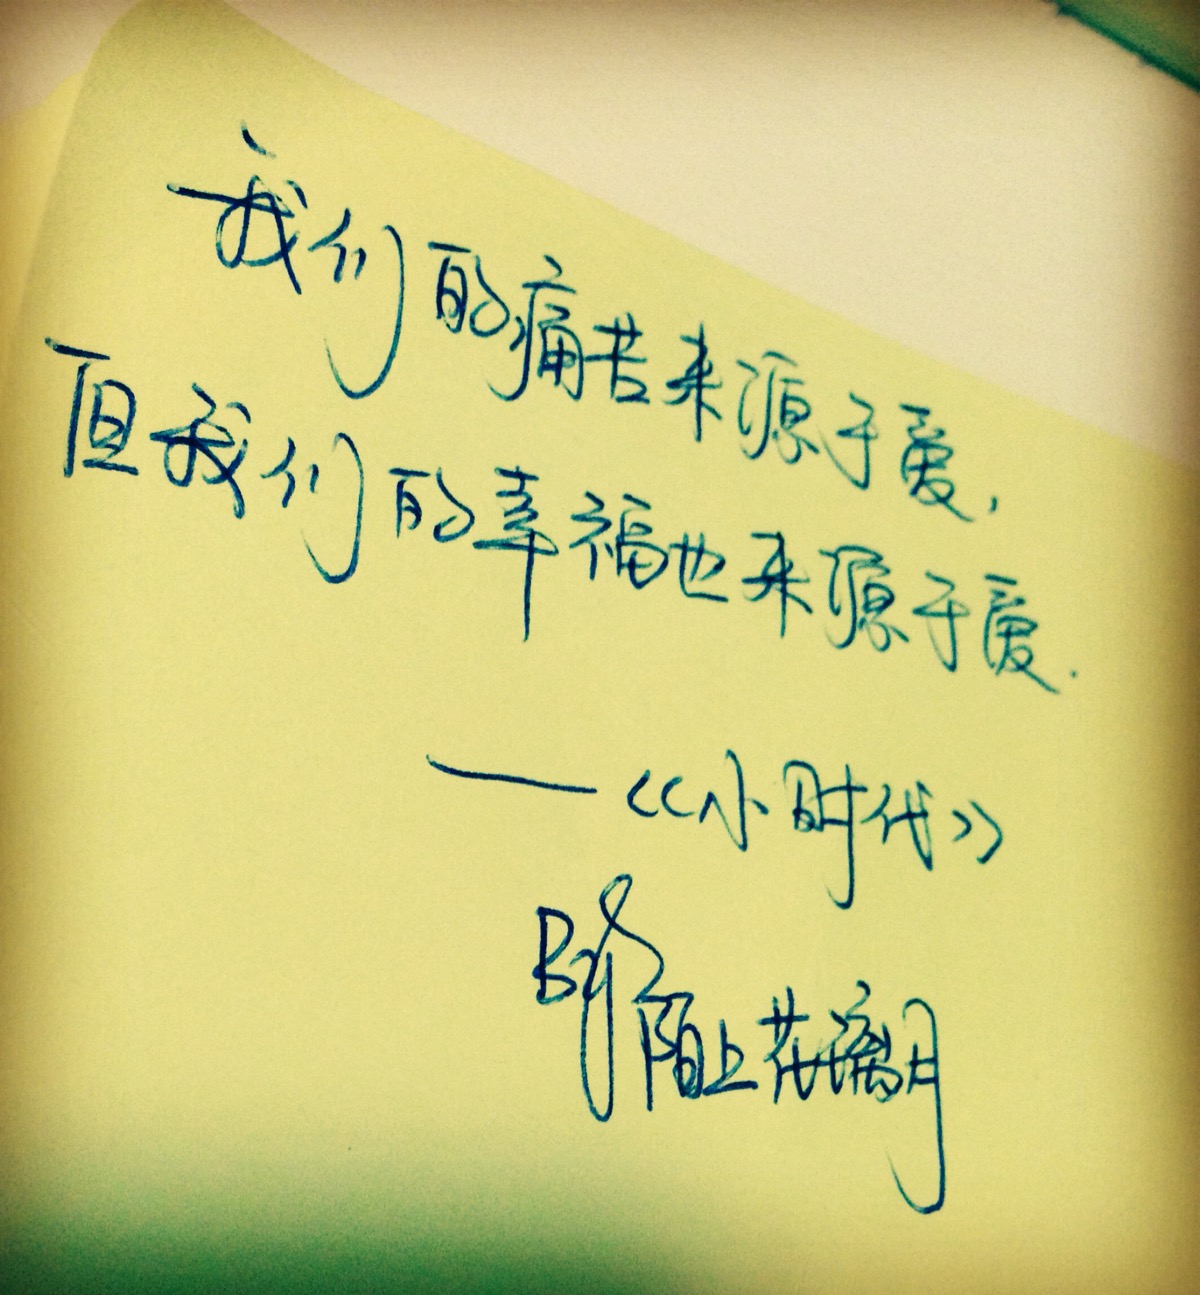 我们的痛苦来源于爱,
但我们的幸福也来源于爱.
—《小时代》
By 陌上花漓月